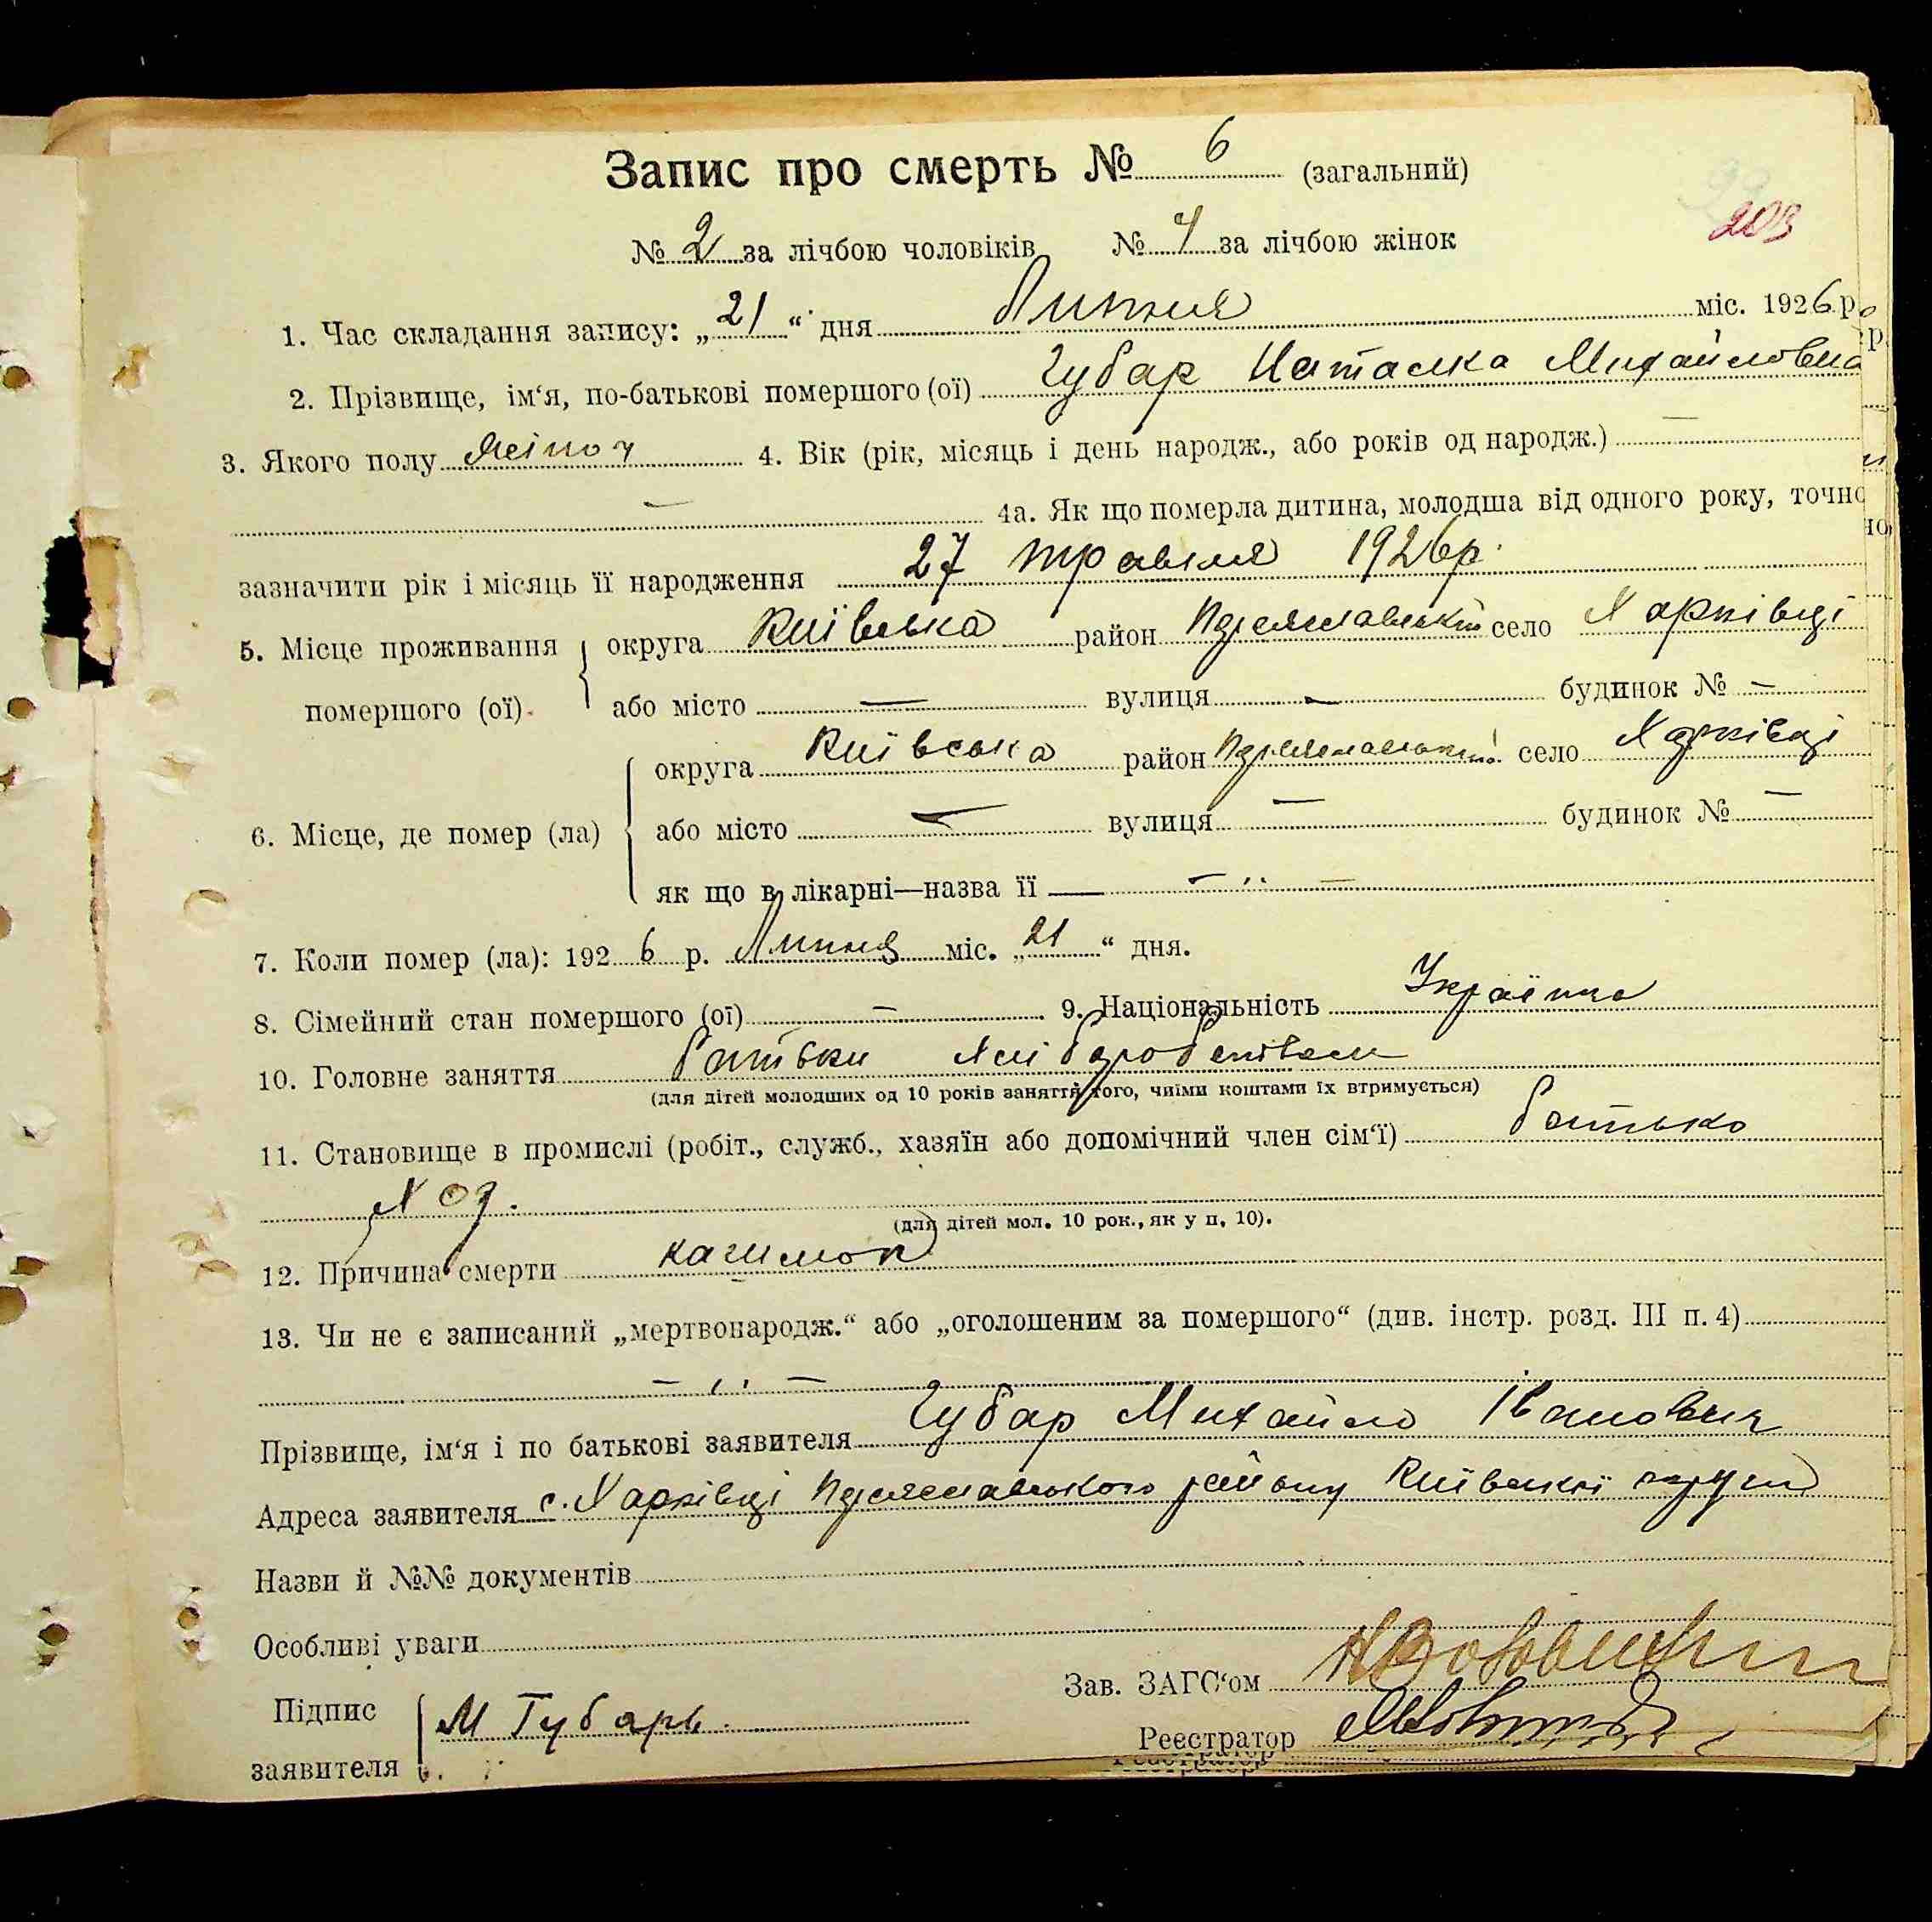 Запис про смерть № 6 (загальний)
203
№ 2 за лічбою чоловіків № 4 за лічбою жінок
1. Час складання запису: „21“ дня Липня міс. 1926 р.
2. Прізвище, ім‘я, по-батькові помершого (ої) Губар Наталка Михайловна
3. Якого полу жіноч 4. Вік (рік, місяць і день народж., або років од народж.) —
— 4а. Як що померла дитина, молодша від одного року, точно
зазначити рік і місяць її народження 27 травня 1926 р.
5. Місце проживання округа Київська район Переяславський село Харківці
помершого (ої) або місто — вулиця — будинок № —
округа Київська район Переяславський село Харківці
6. Місце, де помер (ла) або місто — вулиця — будинок № —
як що в лікарні—назва її — „ —
7. Коли помер (ла): 1926 р. Липня міс. „21“ дня.
8. Сімейний стан помершого (ої) — 9. Національність Українка
10. Головне заняття батьки
(для дітей молодших од 10 років заняття того, чиїми коштами їх втримується)
11. Становище в промислі (робіт., служб., хазяїн або допомічний член сім‘ї) батько
Хоз.
(для дітей мол. 10 рок., як у п. 10).
12. Причина смерти кашлюк
13. Чи не є записаний „мертвонародж.“ або „оголошеним за помершого“ (див. інстр. розд. III п. 4)
— „ —
Прізвище, ім‘я і по батькові заявителя Губар Михайло Іванович
Адреса заявителя с. Харківці Переяславського району Київської округи
Назви й №№ документів
Особливі уваги
Зав. ЗАГС‘ом
Підпис М Губарь
Реєстратор
заявителя